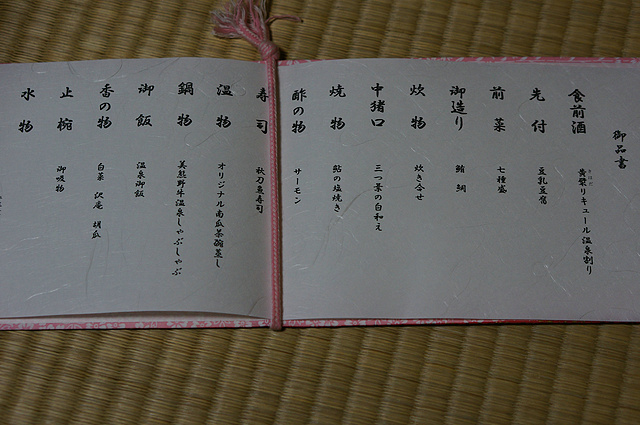 御品書
食前酒 黄檗リキュール温泉割り
きはだ
先付 豆乳豆腐
前菜 七種盛
御造り 鮪 鯛
炊物 炊き合せ
中猪口 三つ葉の白和え
焼物 鮎の塩焼き
酢の物 サーモン
寿司 秋刀魚寿司
温物 オリジナル南瓜茶碗蒸し
鍋物 美熊野牛温泉しゃぶしゃぶ
御飯 温泉御飯
香の物 白菜 沢庵 胡瓜
止椀 御吸物
水物